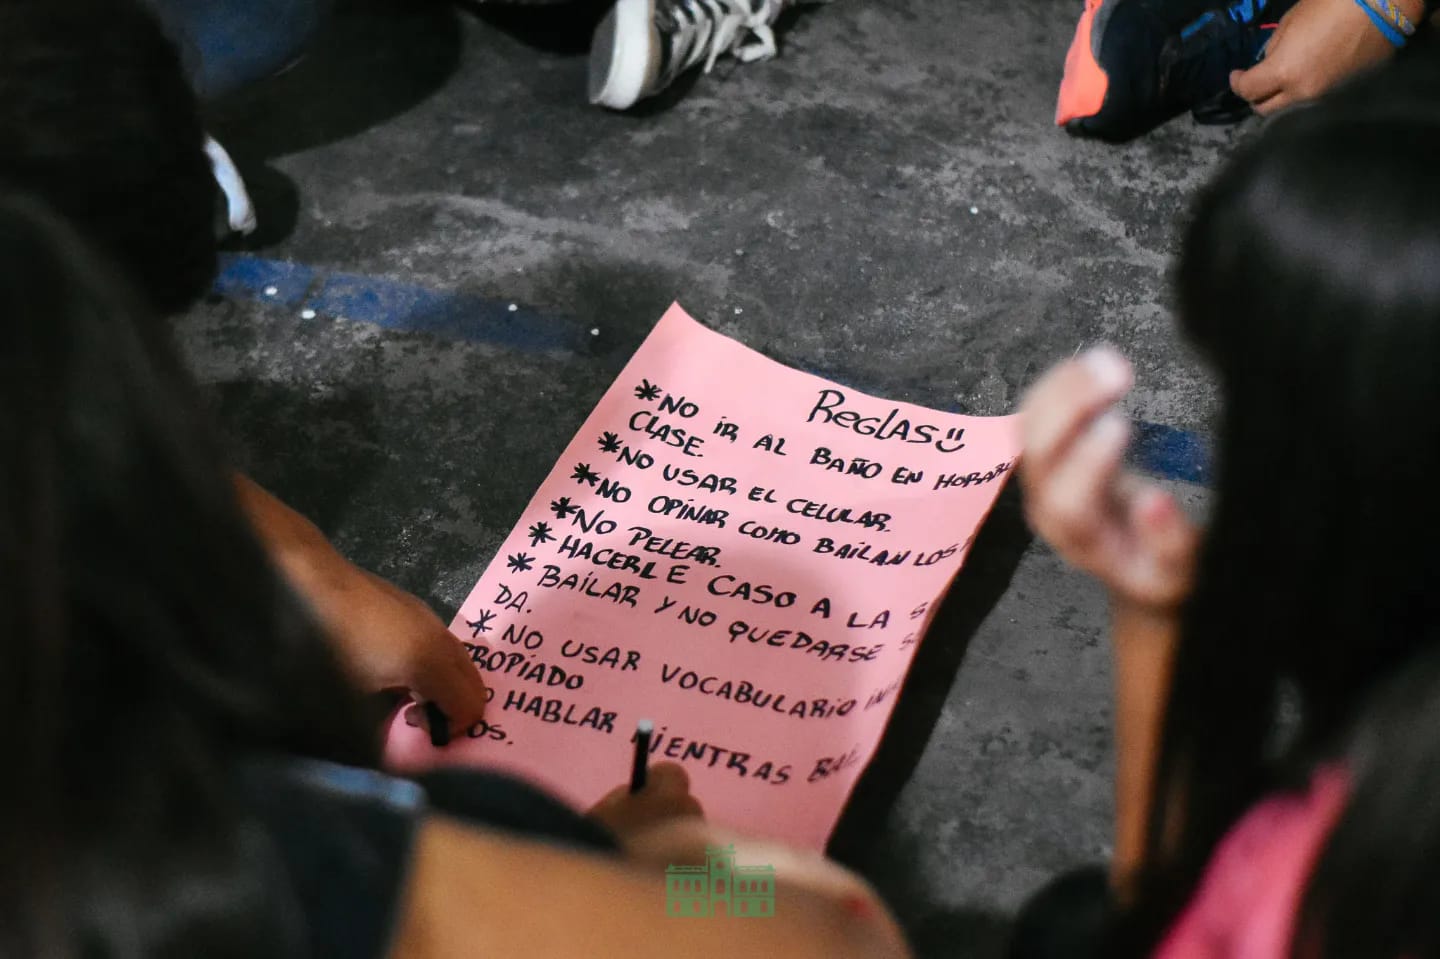 REGLAS
*NO IR AL BAÑO EN HORARIO
CLASE.
*NO USAR EL CELULAR.
*NO OPINAR COMO BAILAN LOS
*NO PELEAR.
*HACERLE CASO A LA
*BAILAR Y NO QUEDARSE
DA.
*NO USAR VOCABULARIO IN
PROPIADO
HABLAR MIENTRAS
OS.